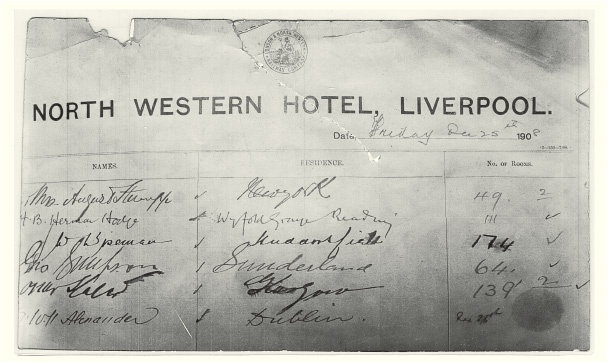 NORTH WESTERN HOTEL, LIVERPOOL.
Date, Friday Dec 25th 1908
NAMES. RESIDENCE. No. OF ROOMS.
Mrs. New York 49. 2
B. Herman Hodge Wyfold Grange Reading 111 ✓
Huddersfield 174 ✓
Geo Simpson Sunderland 64. ✓
Glasgow 139 2 ✓
Alexander Dublin.